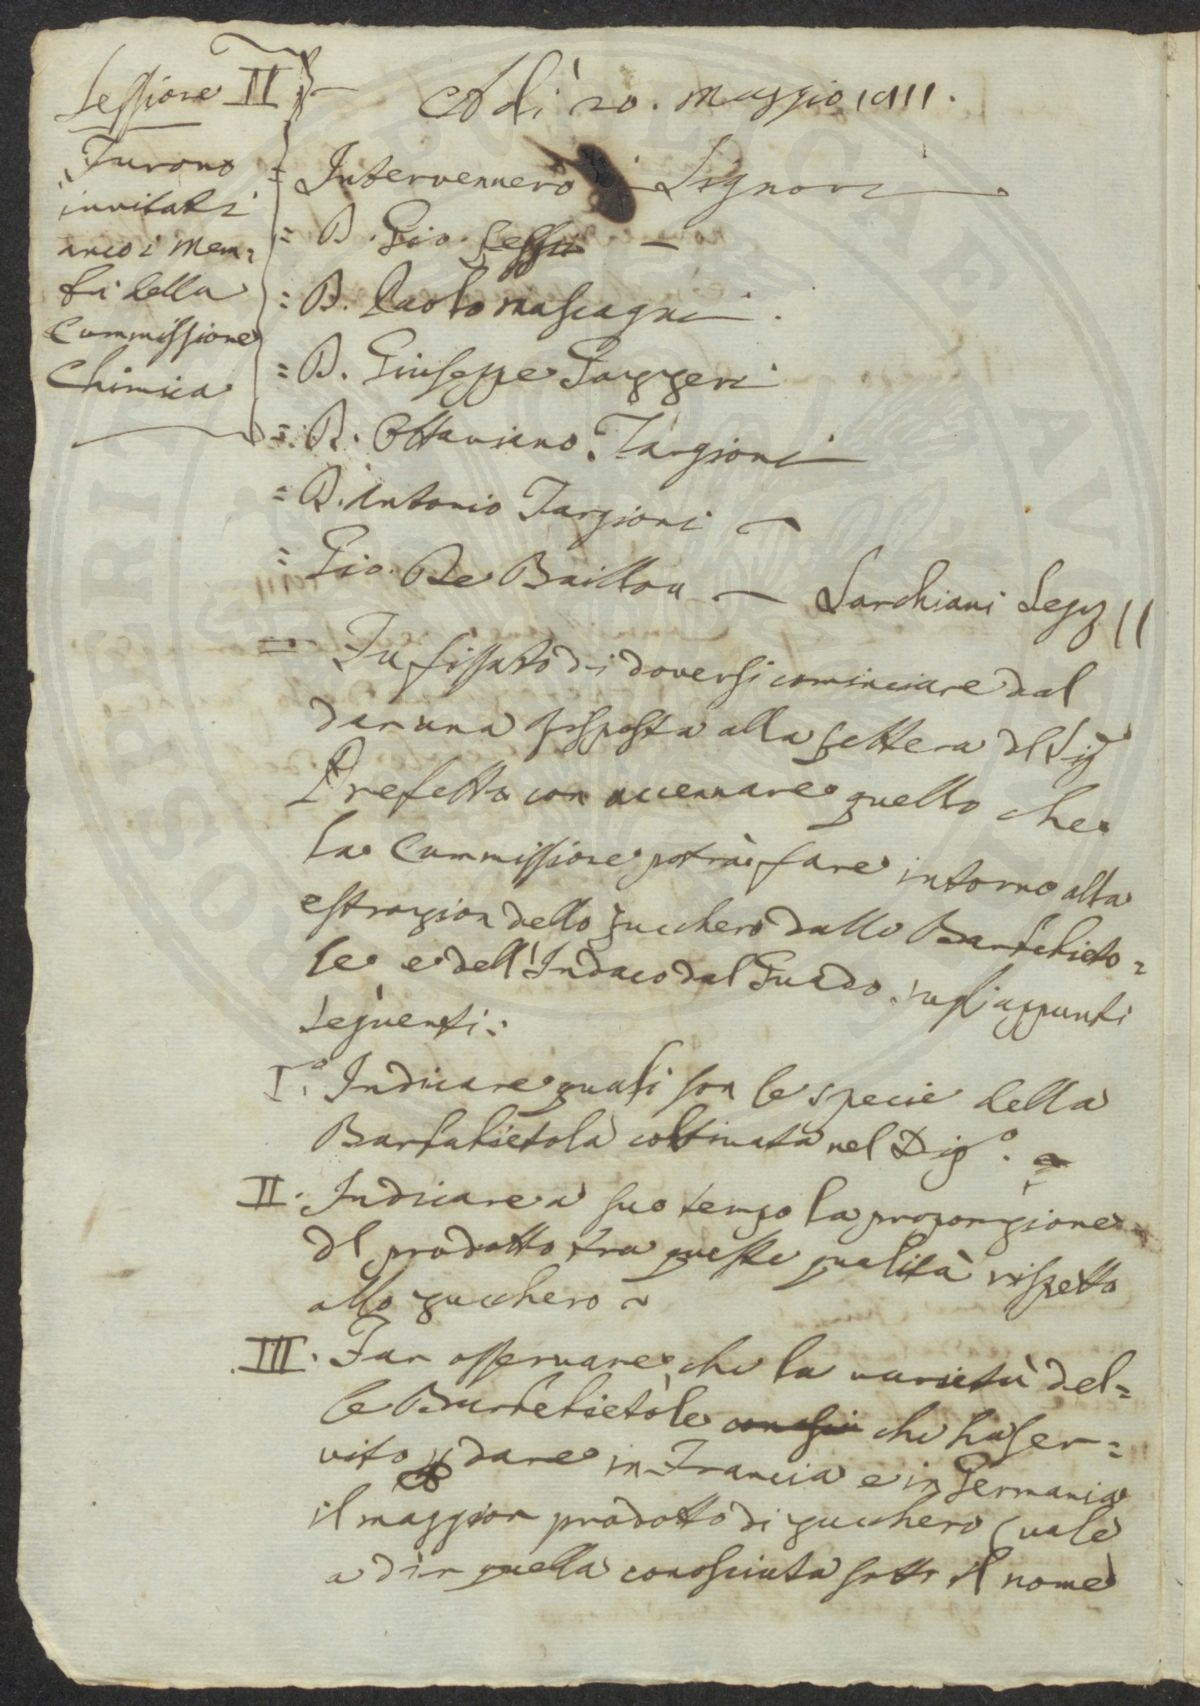 Sessione II
Furono
invitati
anco i Mem=
bri della
Commissione
Chimica
Adì 20. Maggio 1811.
Intervennero i Signori
= D. Gio.
= D. Paolo Mascagni
= D. Giuseppe Gazzeri
= D. Ottaviano Targioni
= D. Antonio Targioni
= Gio. De Baillou — Sarchiani Segr.
= Fu fissato di doversi cominciare dal
dar una risposta alla lettera del Sig.
Prefetto con accennare quello che
la Commissione potrà fare intorno alla
estrazion dello zucchero dalle Barbebieto=
le e dell'Indaco dal Guado, sugli appunti
seguenti:
I.° Indicare quali son le specie della
Barbabietola coltivata nel Dip.°
II. Indicare a suo tempo la proporzione
del prodotto tra queste qualità rispetto
allo zucchero
III. Far osservare che la varietà del=
le Barbebietole che ha ser=
vito p dare in Francia e in Germania
il maggior prodotto di zucchero (vale
a dir quella conosciuta sotto il nome